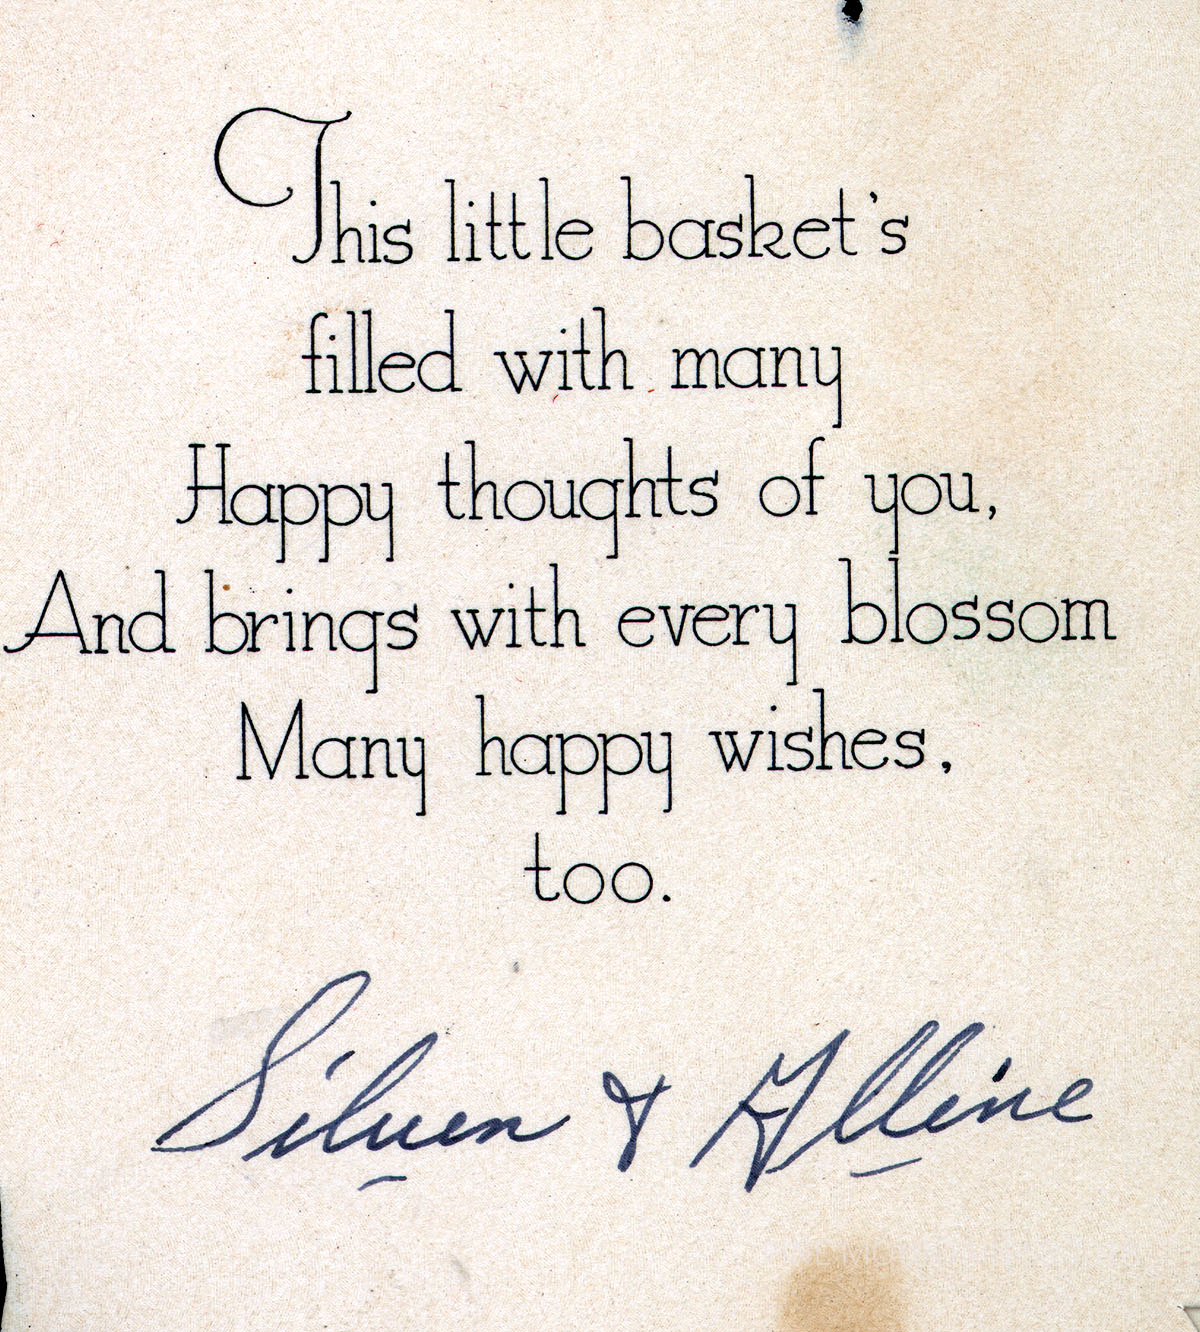 This little basket's
filled with many
Happy thoughts of you,
And brings with every blossom
Many happy wishes,
too.
Silven & Alline